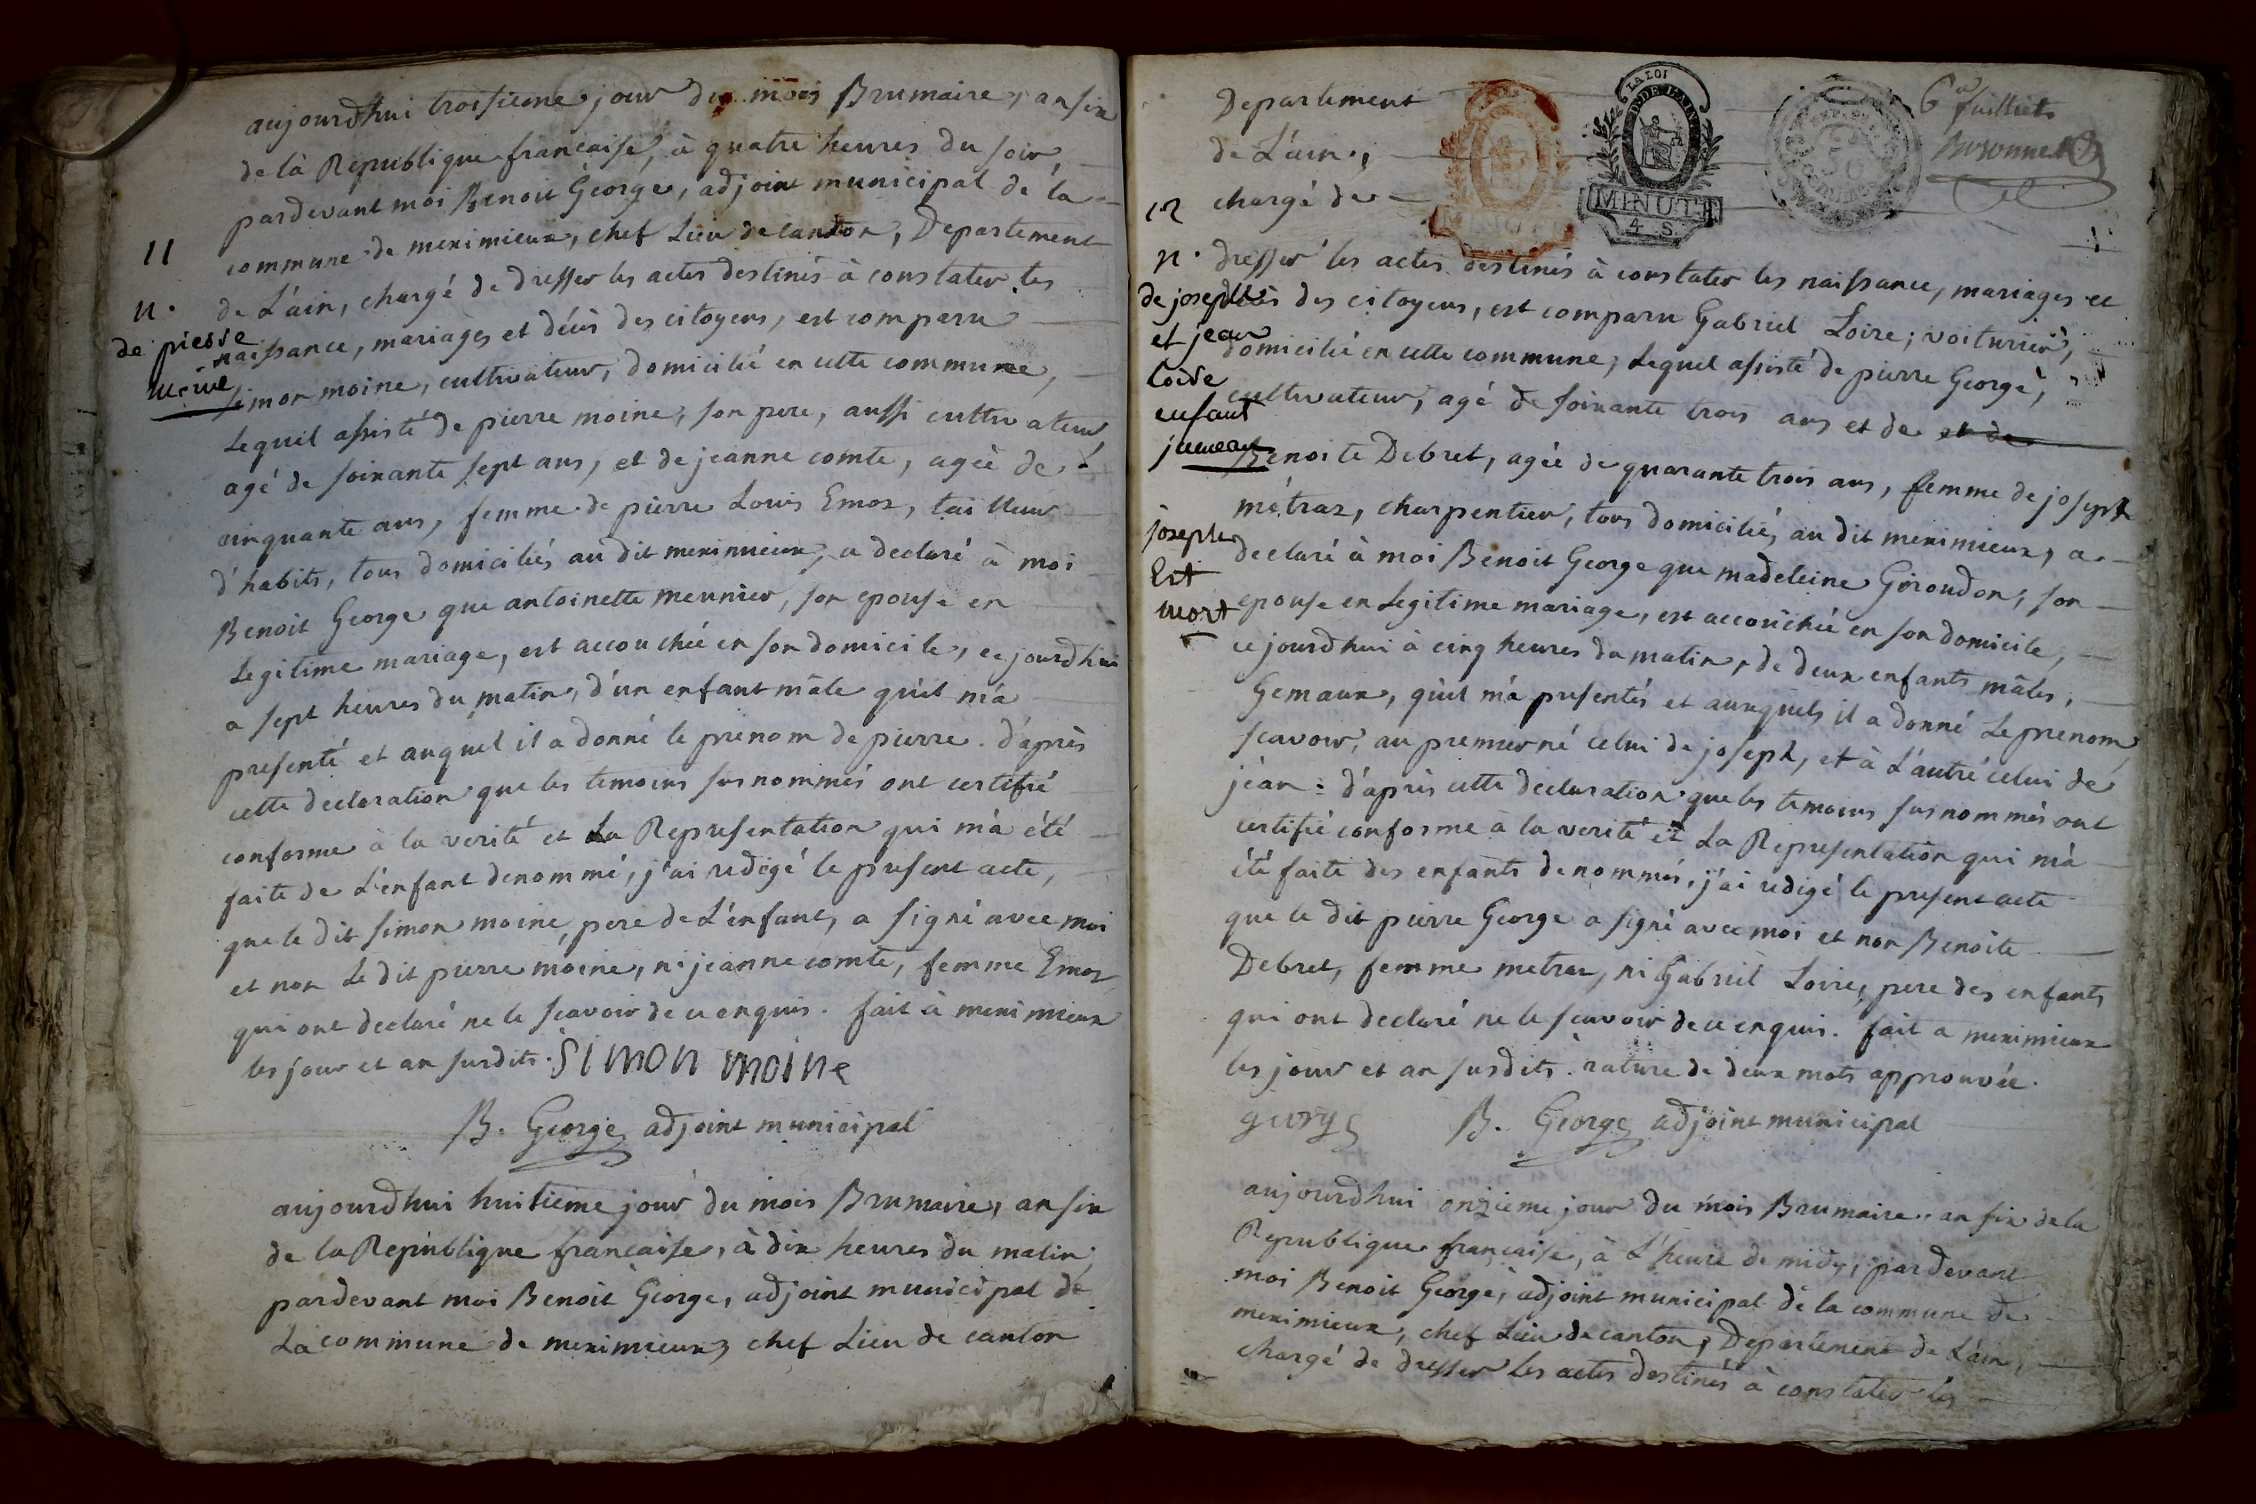 aujourdhui troisieme jour du mois Brumaire, an six
de la Republique francaise, à quatre heures du soir,
pardevant moi Benoit George, adjoint municipal de la
commune de meximieux, chef Lieu de canton, Departement
11
de L'ain, chargé de dresser les actes destinés à constater les
n.
de pierre
moine
naissance, mariages et décès des citoyens, est comparu
simon moine, cultivateur, domicilié en cette commune,
Lequel assisté de pierre moine, son pere, aussi cultivateur,
agé de soixante sept ans, et de jeanne comte, agée de
cinquante ans, femme de pierre Louis Emoz, tailleur
d'habits, tous domiciliés au dit meximieux, a declaré à moi
Benoit George que antoinette meunier, son epouse en
Legitime mariage, est accouchée en son domicile, ce jourdhui
a sept heures du matin, d'un enfant mâle qu'il m'a
presenté et auquel il a donné le prenom de pierre. d'après
cette declaration que les temoins sus nommés ont certifié
conforme à la verité et La Representation qui m'a été
faite de L'enfant denommé, j'ai redigé le present acte,
que le dit simon moine, pere de L'enfant, a signé avec moi
et non Le dit pierre moine, ni jeanne comte, femme Emoz
qui ont declaré ne le scavoir de ce enquis. fait à meximieux
les jour et an susdits. Simon moine
B. George adjoint municipal
aujourdhui huitieme jour du mois Brumaire, an six
de la Republique francaise, à dix heures du matin,
pardevant moi Benoit George, adjoint municipal de
La commune de meximieux, chef Lieu de canton
6
feuillets
LA LOI
MINUTE
4 S.
Departement
de L'ain,
chargé de
12
n.
de joseph
et jean
Loire
enfant
jumeaux
dresser les actes destinés à constater les naissance, mariages et
décès des citoyens, est comparu Gabriel Loire, voiturier,
domicilié en cette commune, Lequel assisté de pierre George,
cultivateur, agé de soixante trois ans et de et de
Benoite Debret, agée de quarante trois ans, femme de joseph
métraz, charpentier, tous domiciliés au dit meximieux, a
joseph
Est
mort
declaré à moi Benoit George que madeleine Giroudon, son
epouse en Legitime mariage, est accouchée en son domicile,
ce jourdhui à cinq heures du matin, de deux enfants mâles,
Gemaux, qu'il m'a presentés et auxquels il a donné Le prenom,
scavoir, au premier né celui de joseph, et à L'autre celui de
jean. d'après cette declaration que les temoins sus nommés ont
certifié conforme à la verité et La Representation qui m'a
été faite des enfants denommés, j'ai redigé le present acte
que le dit pierre George a signé avec moi et non Benoite
Debret, femme metraz, ni Gabriel Loire, pere des enfants
qui ont declaré ne le scavoir de ce enquis. fait a meximieux
les jour et an susdits. rature de deux mots approuvée.
B. George adjoint municipal
aujourdhui onzieme jour du mois Brumaire, an six de la
Republique francaise, à L'heure de midy, pardevant
moi Benoit George, adjoint municipal de la commune de
meximieux, chef Lieu de canton, Departement de L'ain,
chargé de dresser les actes destinés à constater les